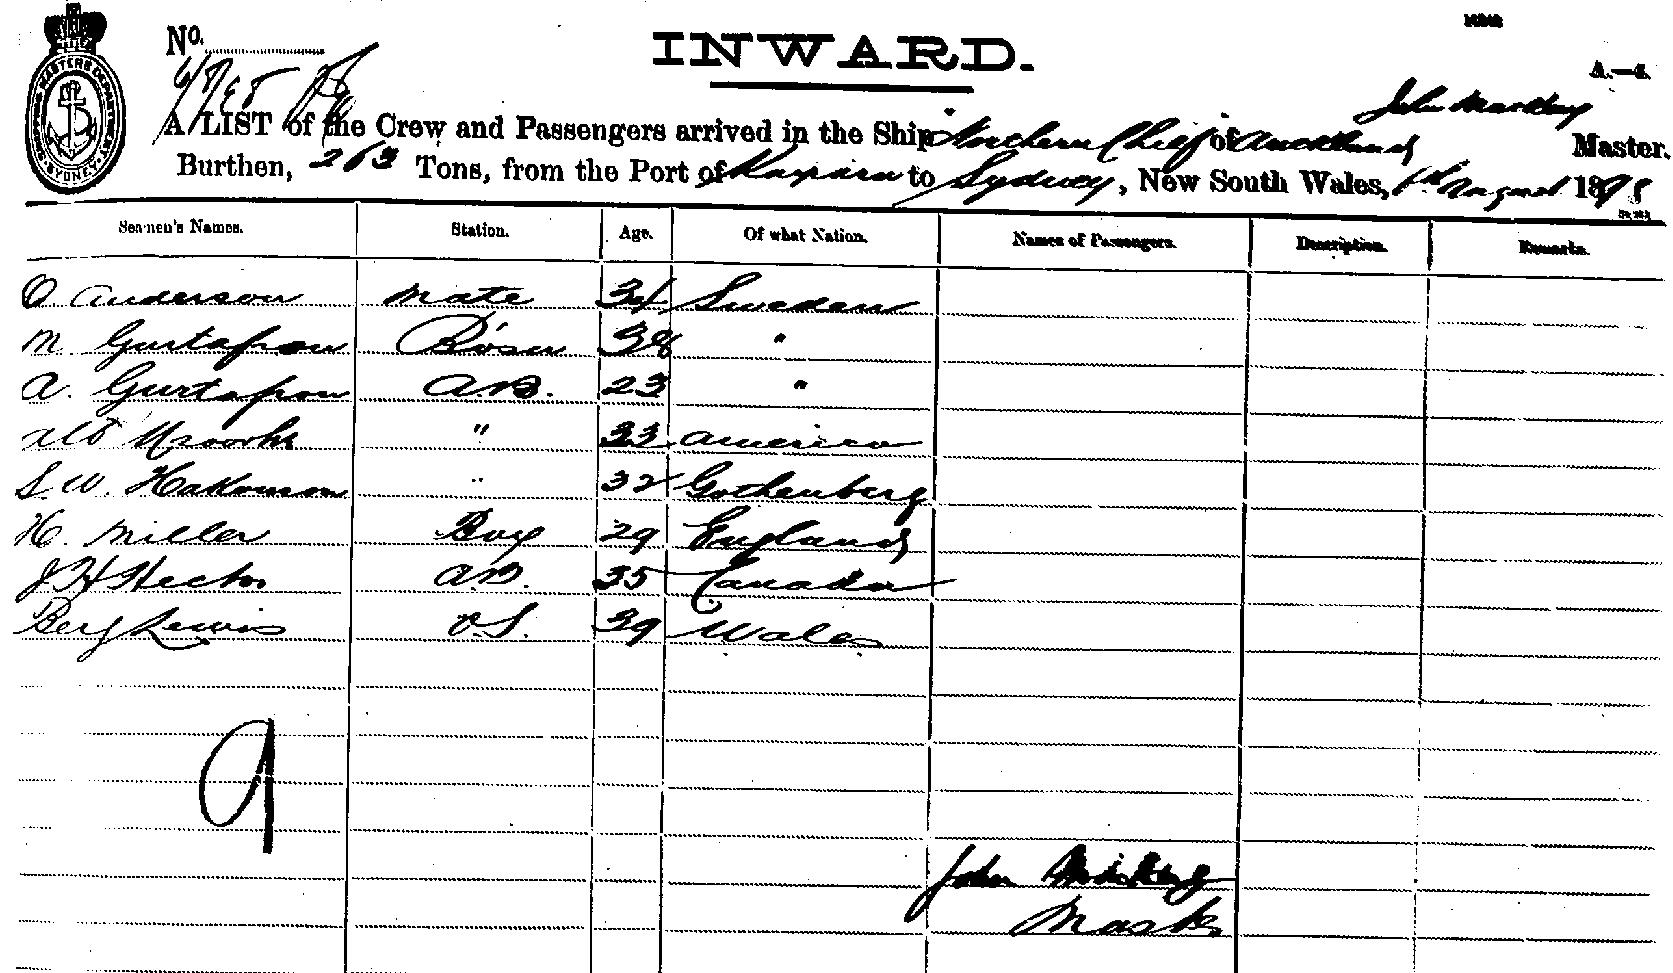 No.
INWARD.
A.—4.
John MacKay
A LIST of the Crew and Passengers arrived in the Ship Northern Chief of Auckland Master.
Burthen, 263 Tons, from the Port of Kaipara to Sydney, New South Wales, 1st August 1898
Seamen's Names. Station. Age. Of what Nation. Names of Passengers. Description. Remarks.
O Anderson Mate 34 Sweden
M Gustafson Bosen 38 "
A. Gustafson A.B. 23 "
" 33 America
S. W. Hakonson " 32 Gothenberg
H. Miller Boy 29 England
J H Hector A.B. 35 Canada
Benj Lewis O.S. 39 Wales
9
John
Mastr
SHIPPING MASTERS DEPARTMENT SYDNEY